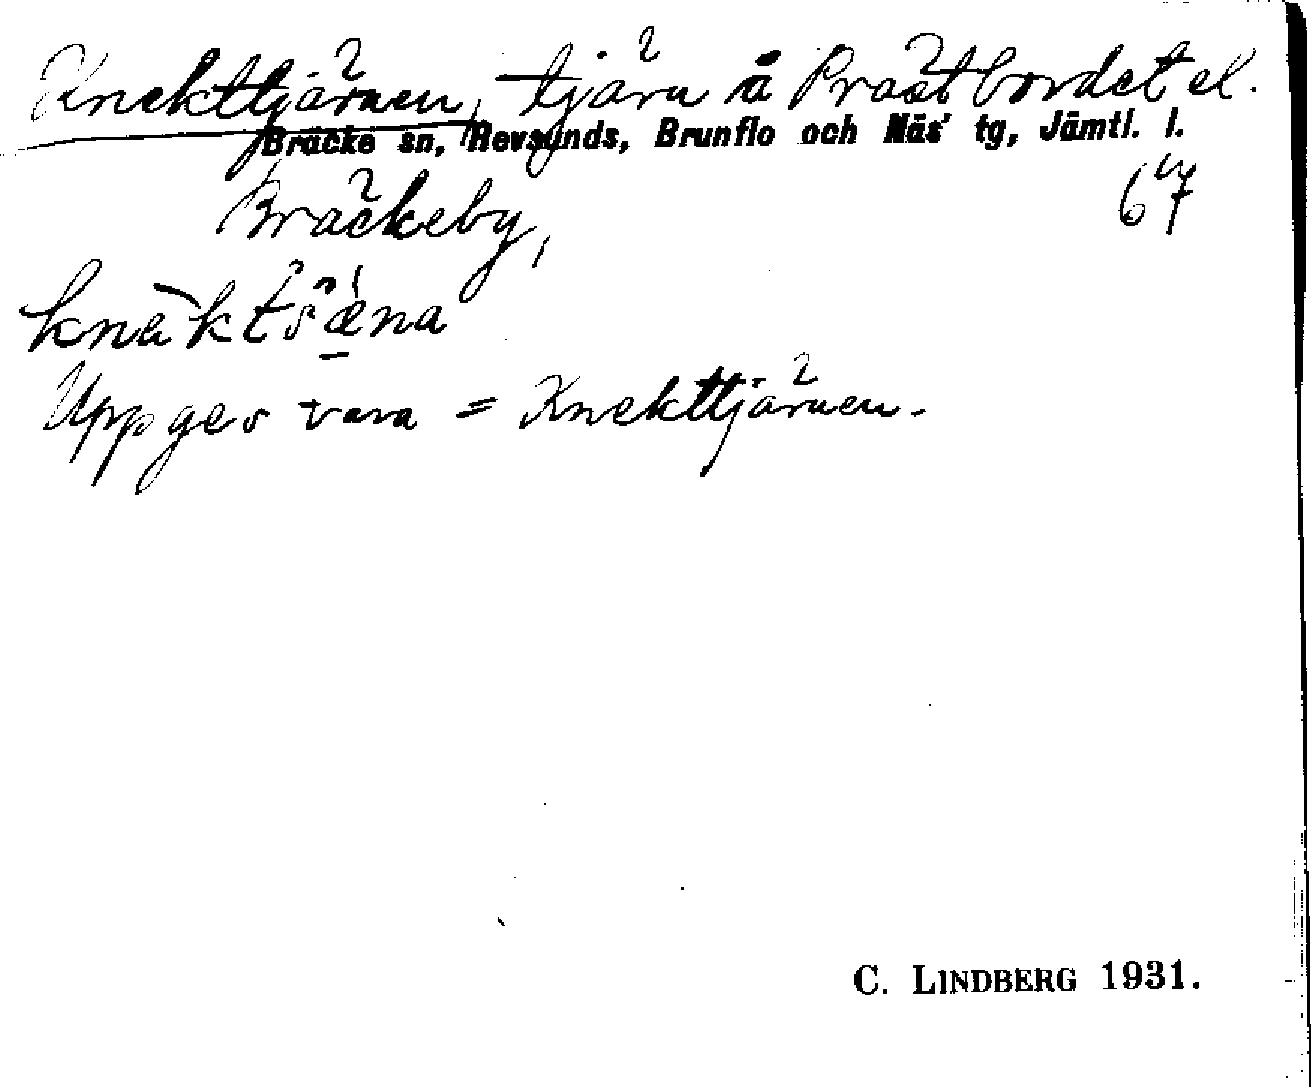 Knekttjärnen, tjärn å Prästbordet el.
Bräcke sn, Revsunds, Brunflo och Näs' tg, Jämtl. l.
Bräckeby,
67
Uppges vara = Knekttjärnen.
C. LINDBERG 1931.